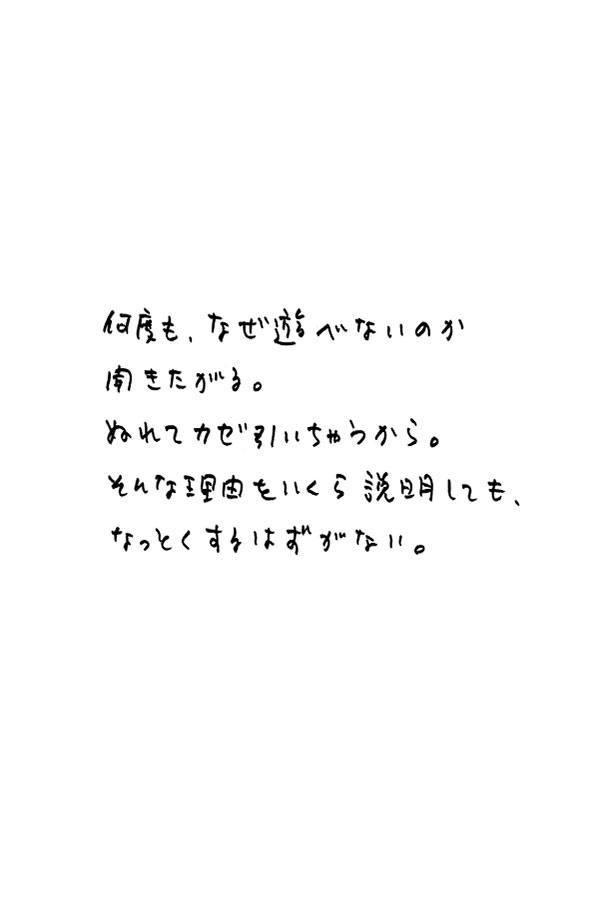 何度も、なぜ遊べないのか
聞きたがる。
ぬれてカゼ引いちゃうから。
そんな理由をいくら説明しても、
なっとくするはずがない。